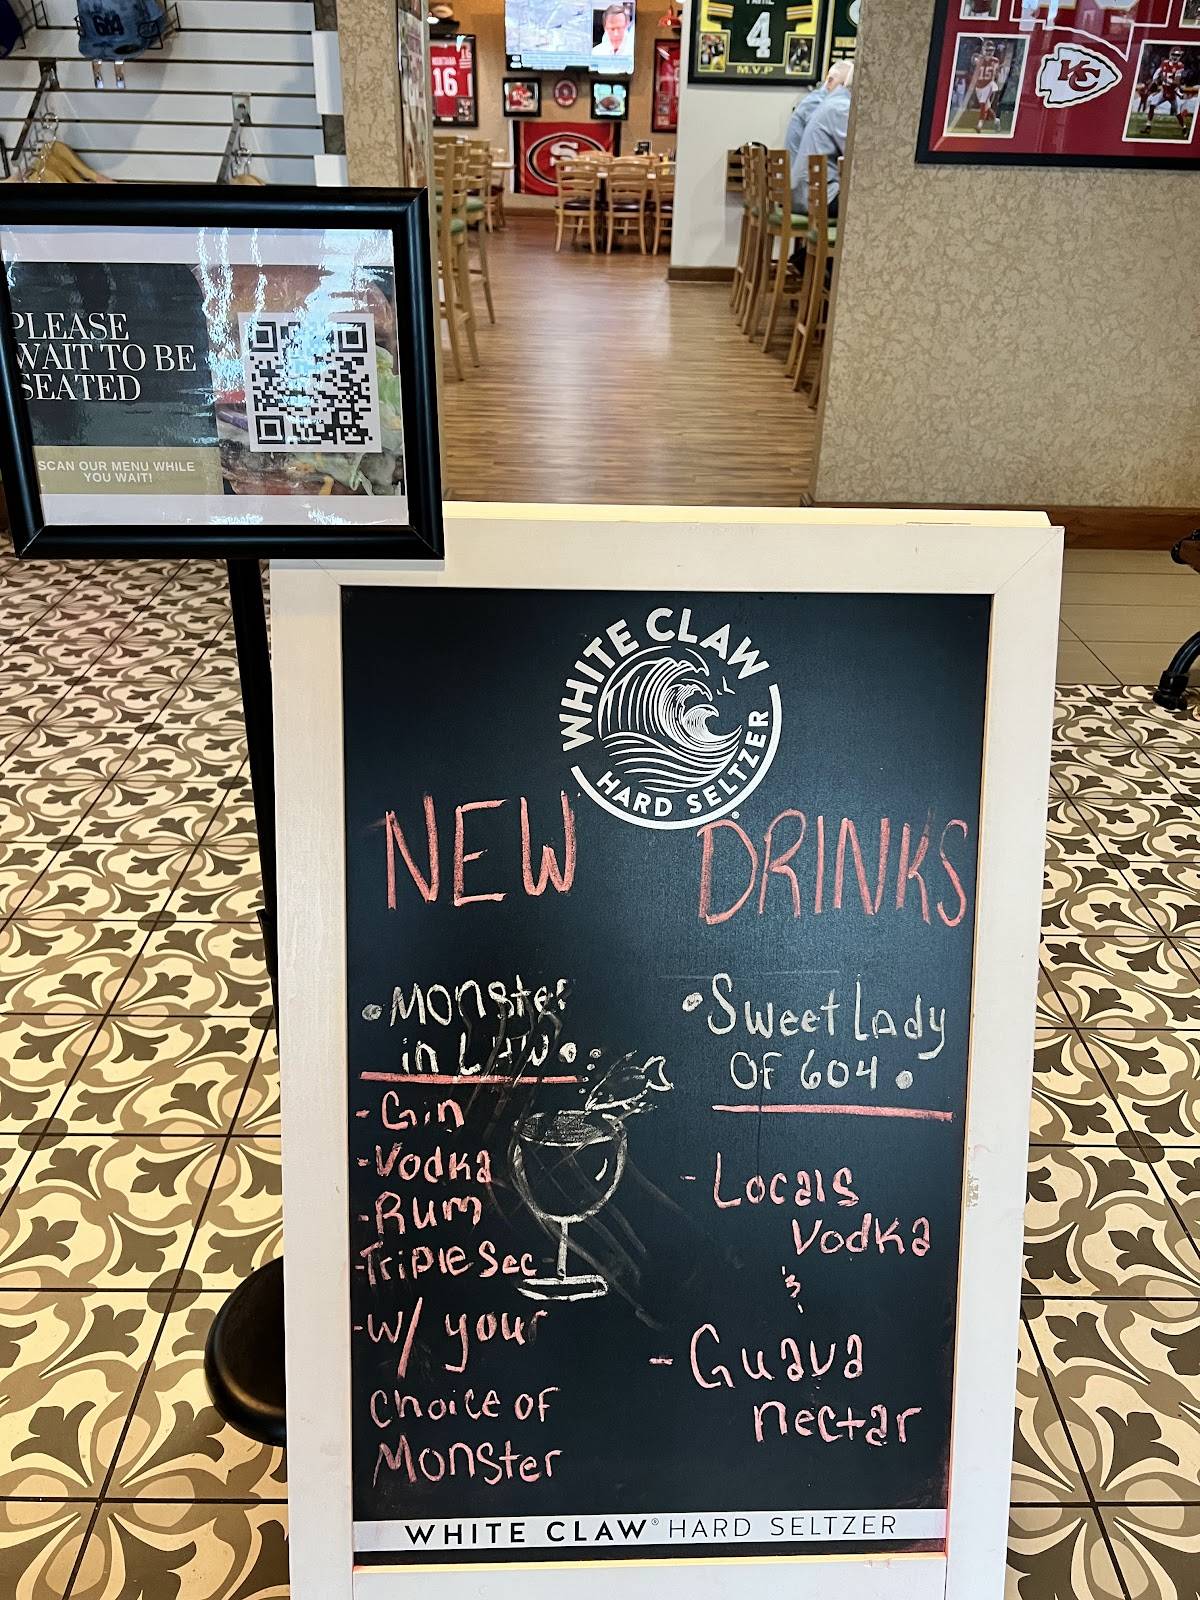 16
4
M.V.P
KC
SF
PLEASE
WAIT TO BE
SEATED
SCAN OUR MENU WHILE
YOU WAIT!
WHITE CLAW
HARD SELTZER
NEW DRINKS
• Monster
in Law •
- Gin
- Vodka
- Rum
- Triple Sec
- w/ your
choice of
Monster
• Sweet Lady
OF 604 •
- Locals
Vodka
&
- Guava
nectar
WHITE CLAW® HARD SELTZER